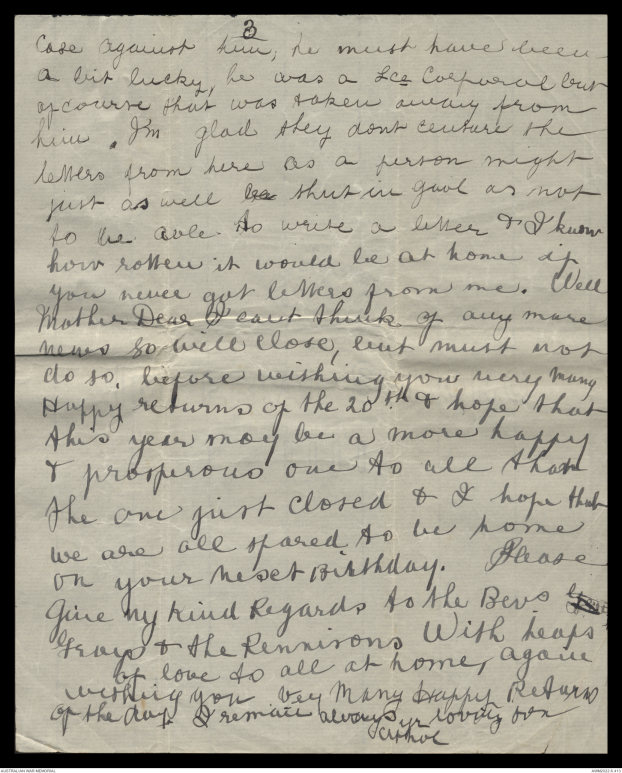 3
Case against him, he must have been
a bit lucky, he was a Lce Corporal but
of course that was taken away from
him. I'm glad they dont centure the
letters from here as a person might
just as well be shut in gaol as not
to be able to write a letter & I know
how rotten it would be at home if
you never got letters from me. Well
Mother Dear I cant think of any more
news so will close, but must not
do so, before wishing you very many
Happy returns of the 20th & hope that
this year may be a more happy
& prosperous one to all than
the one just closed & I hope that
we are all spared to be home
on your next Birthday. Please
Give my kind Regards to the Bevs
Grays & the Rennisons With heaps
of love to all at home, again
wishing you very Many Happy Returns
of the day. I remain always yr loving son
Athol
AUSTRALIAN WAR MEMORIAL
AWM2022.6.413